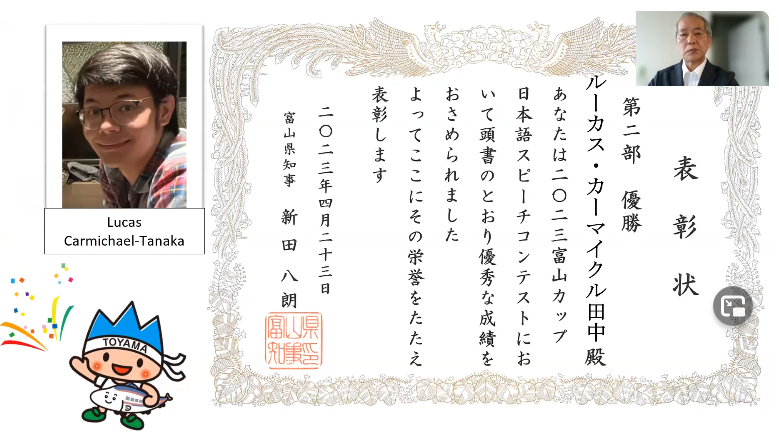 Lucas
Carmichael-Tanaka
TOYAMA
表彰状
第二部 優勝
ルーカス・カーマイクル田中殿
あなたは二〇二三富山カップ
日本語スピーチコンテストにお
いて頭書のとおり優秀な成績を
おさめられました
よってここにその栄誉をたたえ
表彰します
二〇二三年四月二十三日
富山県知事 新田八朗
富山県知事印